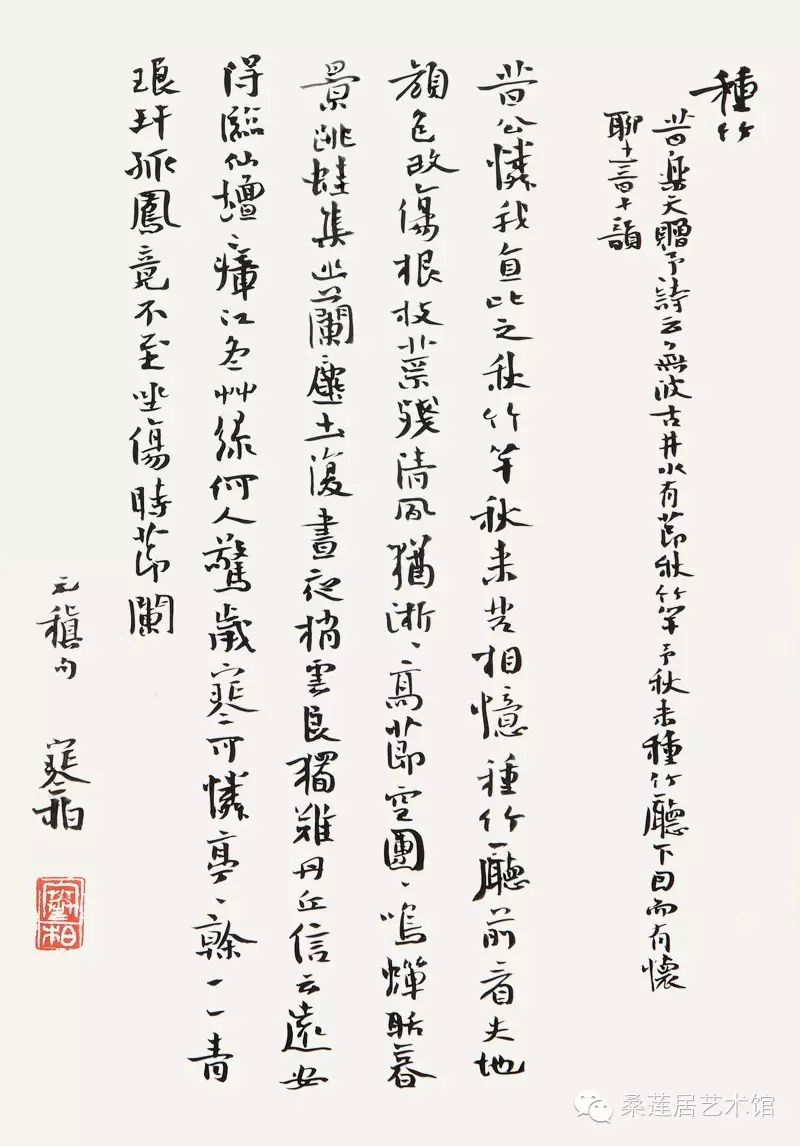 種竹
昔樂天贈予詩云無波古井水有節秋竹竿予秋來種竹廳下因而有懷
聊書十韻
昔公憐我直比之秋竹竿秋來苦相憶種竹廳前看失地
顏色改傷根枝葉殘清風猶淅、高節空團、鳴蟬聒暮
景跳蛙集幽闌塵土復晝夜梢雲良獨難丹丘信云遠安
得臨仙壇瘴江冬艸綠何人驚歲寒可憐亭、幹一一青
琅玕孤鳳竟不至坐傷時節闌
元稹句
桑莲居艺术馆